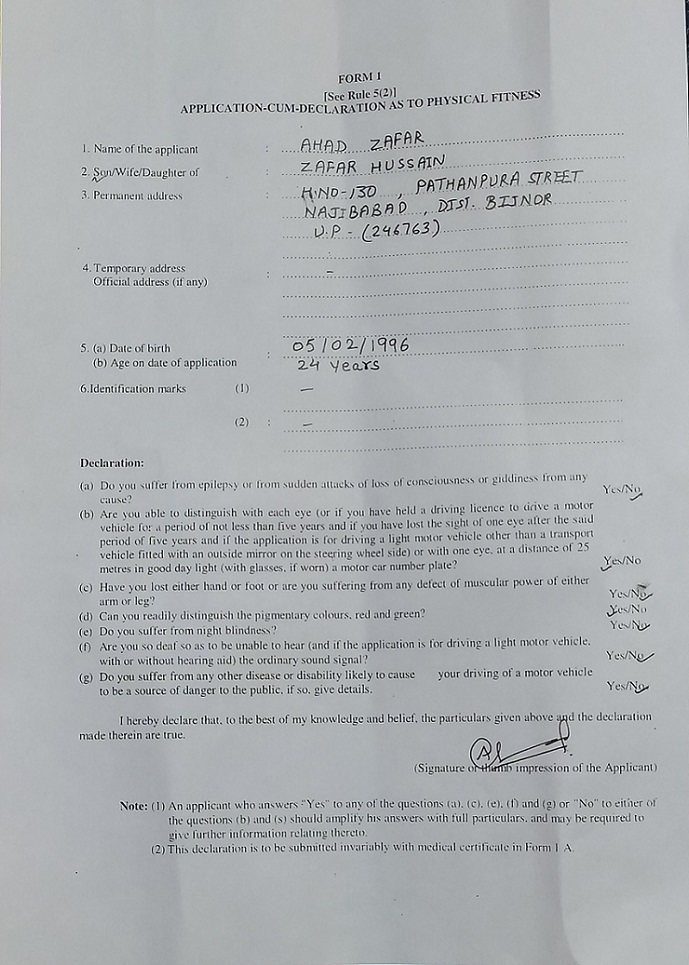 FORM 1
[See Rule 5(2)]
APPLICATION-CUM-DECLARATION AS TO PHYSICAL FITNESS
1. Name of the applicant : AHAD ZAFAR
2. Son/Wife/Daughter of : ZAFAR HUSSAIN
3. Permanent address : H.NO-130 , PATHANPURA STREET
NAJIBABAD , DIST. BIJNOR
U.P - (246763)
4. Temporary address : -
Official address (if any)
5. (a) Date of birth : 05/02/1996
(b) Age on date of application 24 Years
6.Identification marks (1) -
(2) : -
Declaration:
(a) Do you suffer from epilepsy or from sudden attacks of loss of consciousness or giddiness from any
cause? Yes/No
(b) Are you able to distinguish with each eye (or if you have held a driving licence to drive a motor
vehicle for a period of not less than five years and if you have lost the sight of one eye after the said
period of five years and if the application is for driving a light motor vehicle other than a transport
vehicle fitted with an outside mirror on the steering wheel side) or with one eye, at a distance of 25
metres in good day light (with glasses, if worn) a motor car number plate? Yes/No
(c) Have you lost either hand or foot or are you suffering from any defect of muscular power of either
arm or leg? Yes/No
(d) Can you readily distinguish the pigmentary colours, red and green? Yes/No
(e) Do you suffer from night blindness? Yes/No
(f) Are you so deaf so as to be unable to hear (and if the application is for driving a light motor vehicle,
with or without hearing aid) the ordinary sound signal? Yes/No
(g) Do you suffer from any other disease or disability likely to cause your driving of a motor vehicle
to be a source of danger to the public, if so, give details. Yes/No
I hereby declare that, to the best of my knowledge and belief, the particulars given above and the declaration
made therein are true.
(Signature or thumb impression of the Applicant)
Note: (1) An applicant who answers "Yes" to any of the questions (a), (c), (e), (f) and (g) or "No" to either of
the questions (b) and (s) should amplify his answers with full particulars, and may be required to
give further information relating thereto.
(2) This declaration is to be submitted invariably with medical certificate in Form 1 A.